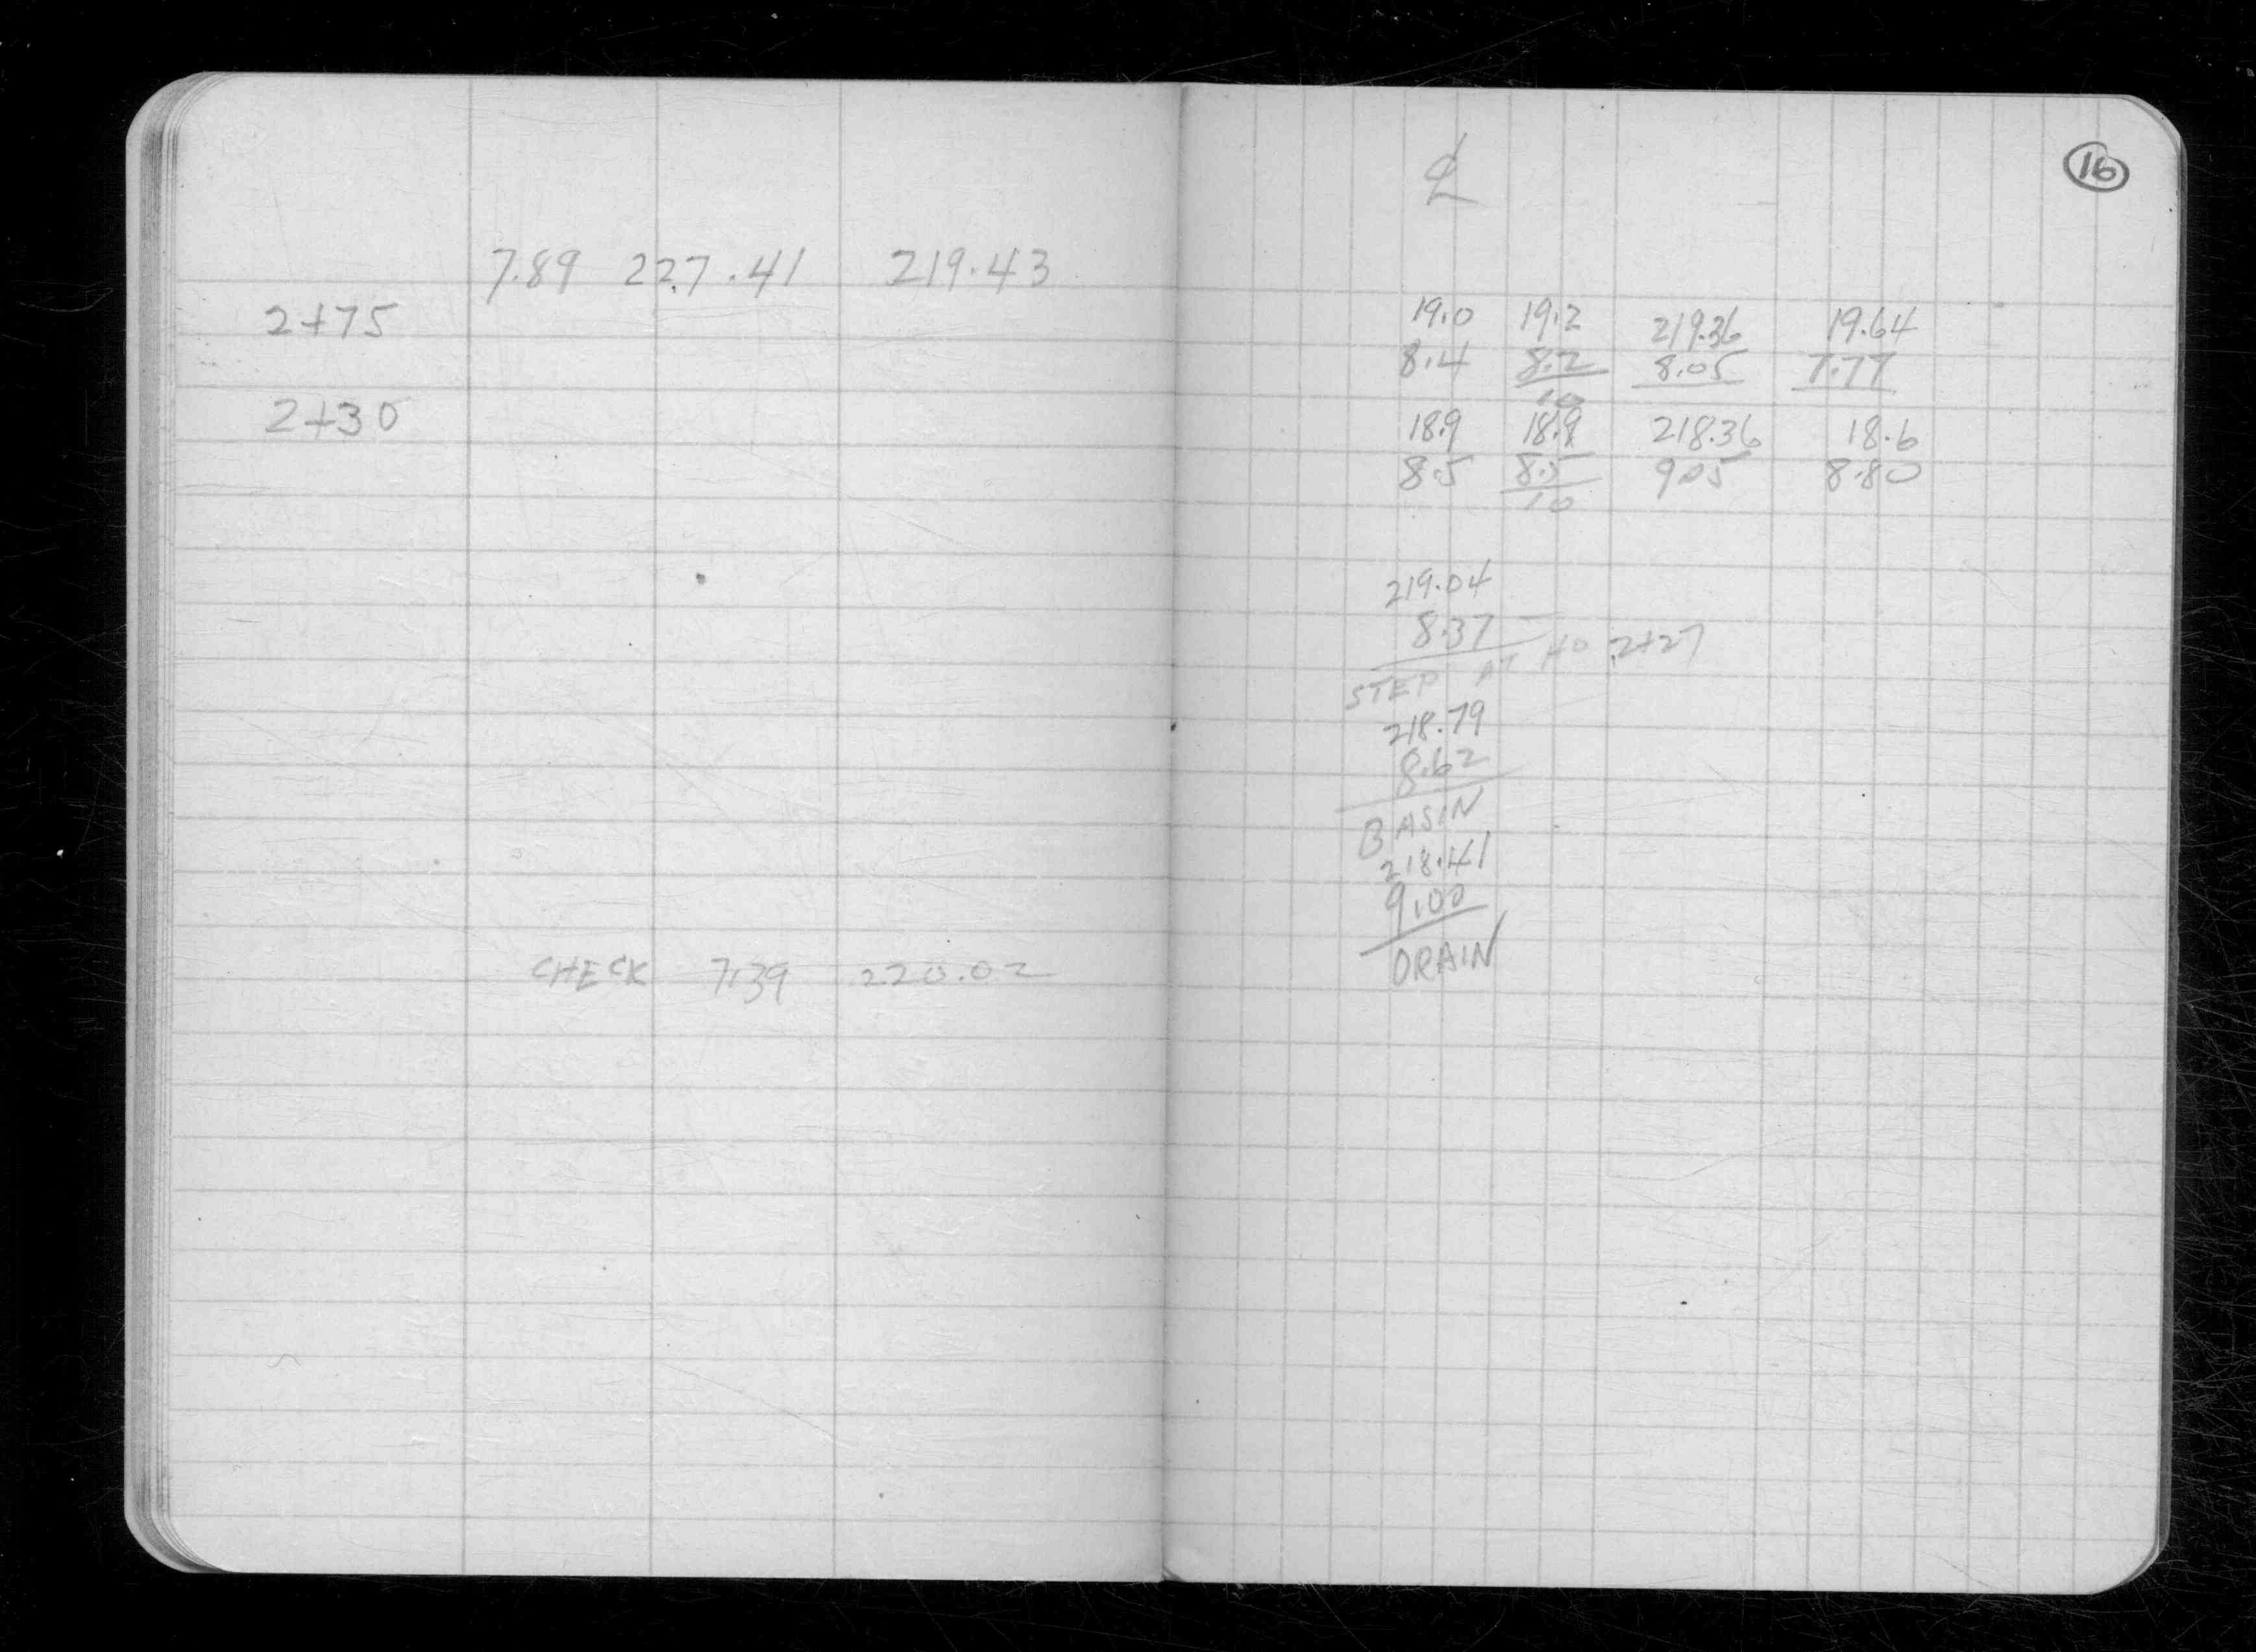 7.89 227.41 219.43
2+75
2+30
CHECK 7.39 220.02
16
℄
19.0 19.2 219.36 19.64
8.4 8.2 8.05 7.77
10
18.9 18.9 218.36 18.6
8.5 8.5 9.05 8.80
10
219.04
8.37
STEP AT 2+27
218.79
8.62
BASIN
218.41
9.00
DRAIN